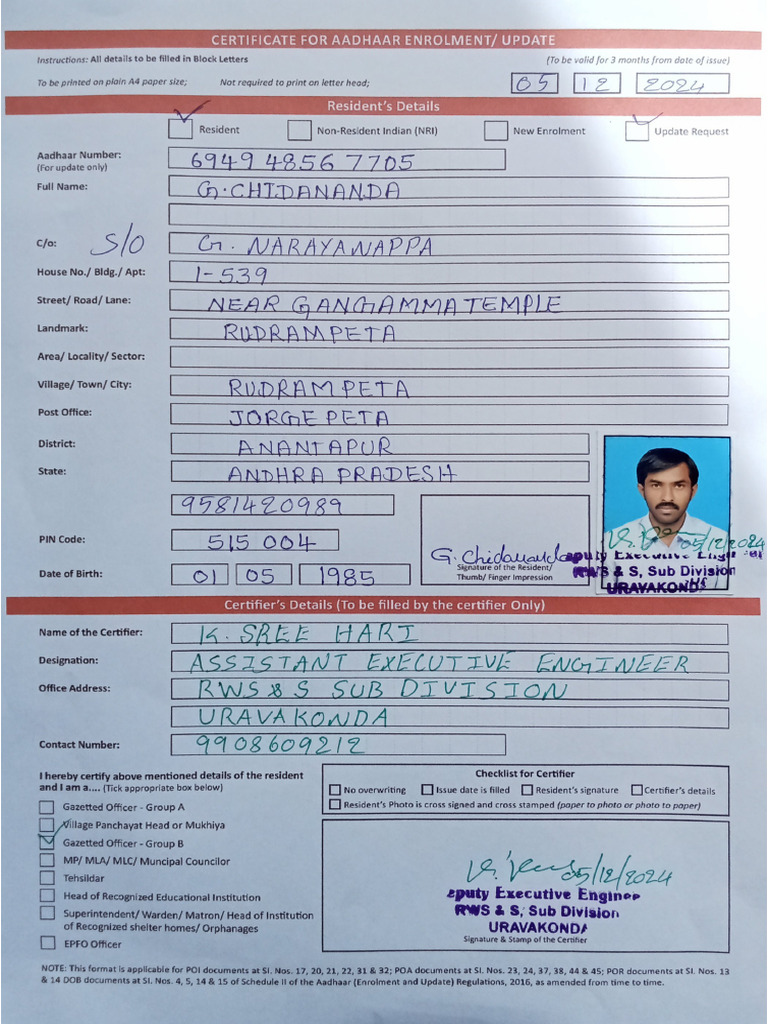 CERTIFICATE FOR AADHAAR ENROLMENT/ UPDATE
Instructions: All details to be filled in Block Letters (To be valid for 3 months from date of issue)
To be printed on plain A4 paper size; Not required to print on letter head; 05 12 2024
Resident's Details
Resident Non-Resident Indian (NRI) New Enrolment Update Request
Aadhaar Number: 6949 4856 7705
(For update only)
Full Name: G. CHIDANANDA
C/o: S/O G. NARAYANAPPA
House No./ Bldg./ Apt: 1-539
Street/ Road/ Lane: NEAR GANGAMMA TEMPLE
Landmark: RUDRAMPETA
Area/ Locality/ Sector:
Village/ Town/ City: RUDRAMPETA
Post Office: JORGEPETA
District: ANANTAPUR
State: ANDHRA PRADESH
9581420989
PIN Code: 515 004
G. Chidananda
Signature of the Resident/
Thumb/ Finger Impression
05/12/2024
eputy Executive Engi
RWS & S, Sub Division
URAVAKONDA
Date of Birth: 01 05 1985
Certifier's Details (To be filled by the certifier Only)
Name of the Certifier: K. SREE HARI
Designation: ASSISTANT EXECUTIVE ENGINEER
Office Address: RWS & S SUB DIVISION
URAVAKONDA
Contact Number: 9908609212
I hereby certify above mentioned details of the resident
and I am a.... (Tick appropriate box below)
Gazetted Officer - Group A
Village Panchayat Head or Mukhiya
Gazetted Officer - Group B
MP/ MLA/ MLC/ Muncipal Councilor
Tehsildar
Head of Recognized Educational Institution
Superintendent/ Warden/ Matron/ Head of Institution
of Recognized shelter homes/ Orphanages
EPFO Officer
Checklist for Certifier
No overwriting Issue date is filled Resident's signature Certifier's details
Resident's Photo is cross signed and cross stamped (paper to photo or photo to paper)
05/12/2024
eputy Executive Enginee
RWS & S, Sub Division
URAVAKONDA
Signature & Stamp of the Certifier
NOTE: This format is applicable for POI documents at Sl. Nos. 17, 20, 21, 22, 31 & 32; POA documents at Sl. Nos. 23, 24, 37, 38, 44 & 45; POR documents at Sl. Nos. 13
& 14 DOB documents at Sl. Nos. 4, 5, 14 & 15 of Schedule II of the Aadhaar (Enrolment and Update) Regulations, 2016, as amended from time to time.